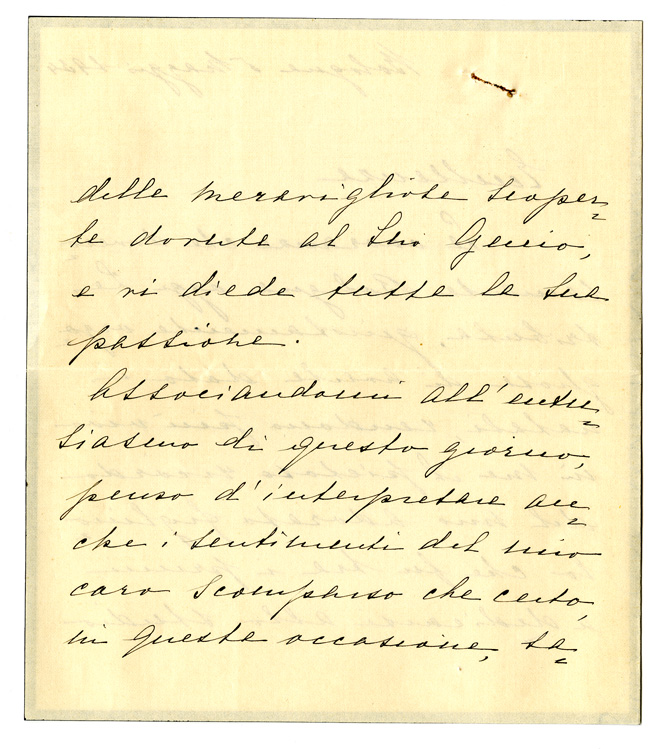 delle meravigliose scoper=
te dovute al Suo Genio,
e vi diede tutta la sua
passione.
Associandomi all'entu=
siasmo di questo giorno,
penso d'interpretare an=
che i sentimenti del mio
caro Scomparso che certo,
in questa occasione, sa=